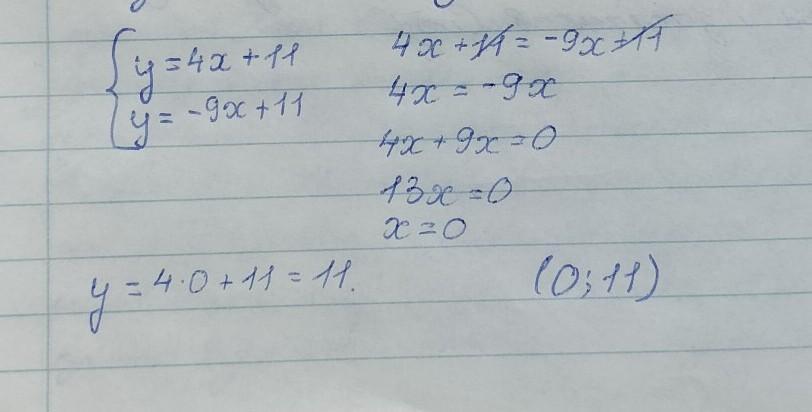 y = 4x + 11
y = -9x + 11
4x + 11 = -9x + 11
4x = -9x
4x + 9x = 0
13x = 0
x = 0
y = 4·0 + 11 = 11.
(0; 11)